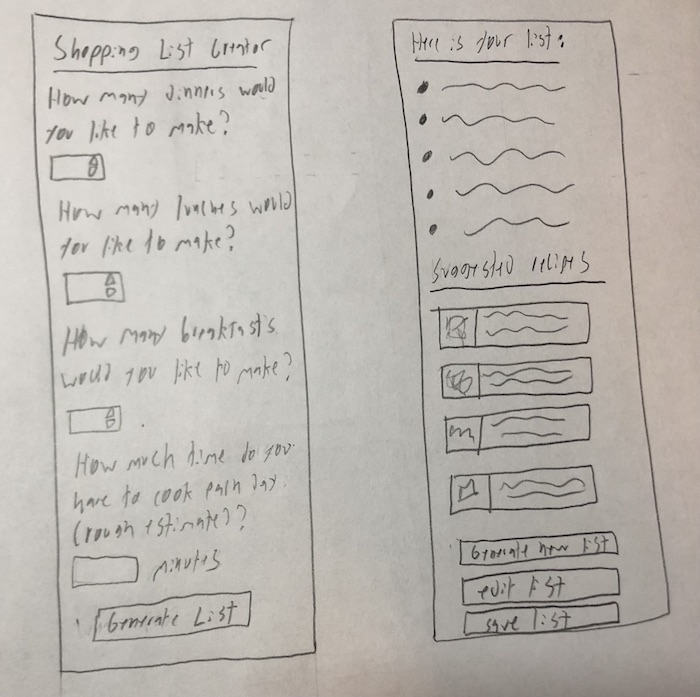 Shopping List Creator
How many dinners would
you like to make?
How many lunches would
you like to make?
How many breakfasts
would you like to make?
How much time do you
have to cook each day
(rough estimate)?
minutes
Generate List
Here is your list:
Suggested recipes
Generate new list
edit list
save list